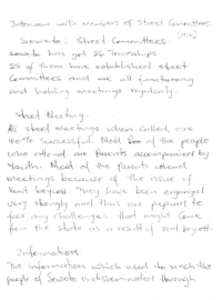 Interview with members of Street Committees.
Soweto: Street Committees.
Soweto has got 26 Townships
25 of them have established street
Committees and are all functioning
and holding meetings regularly.
Street Meeting.
All street meetings when called, are
100% successful. Most of the people
who attend are Parents accompanied by
Youth. Most of the Parents attend
meetings because of the issue of
Rent boycott. They have been organised
very strongly and thus are prepared to
face any challenges that might come
from the state as a result of rent boycott.
Information.
The information which need to reach the
people of Soweto is disseminated through